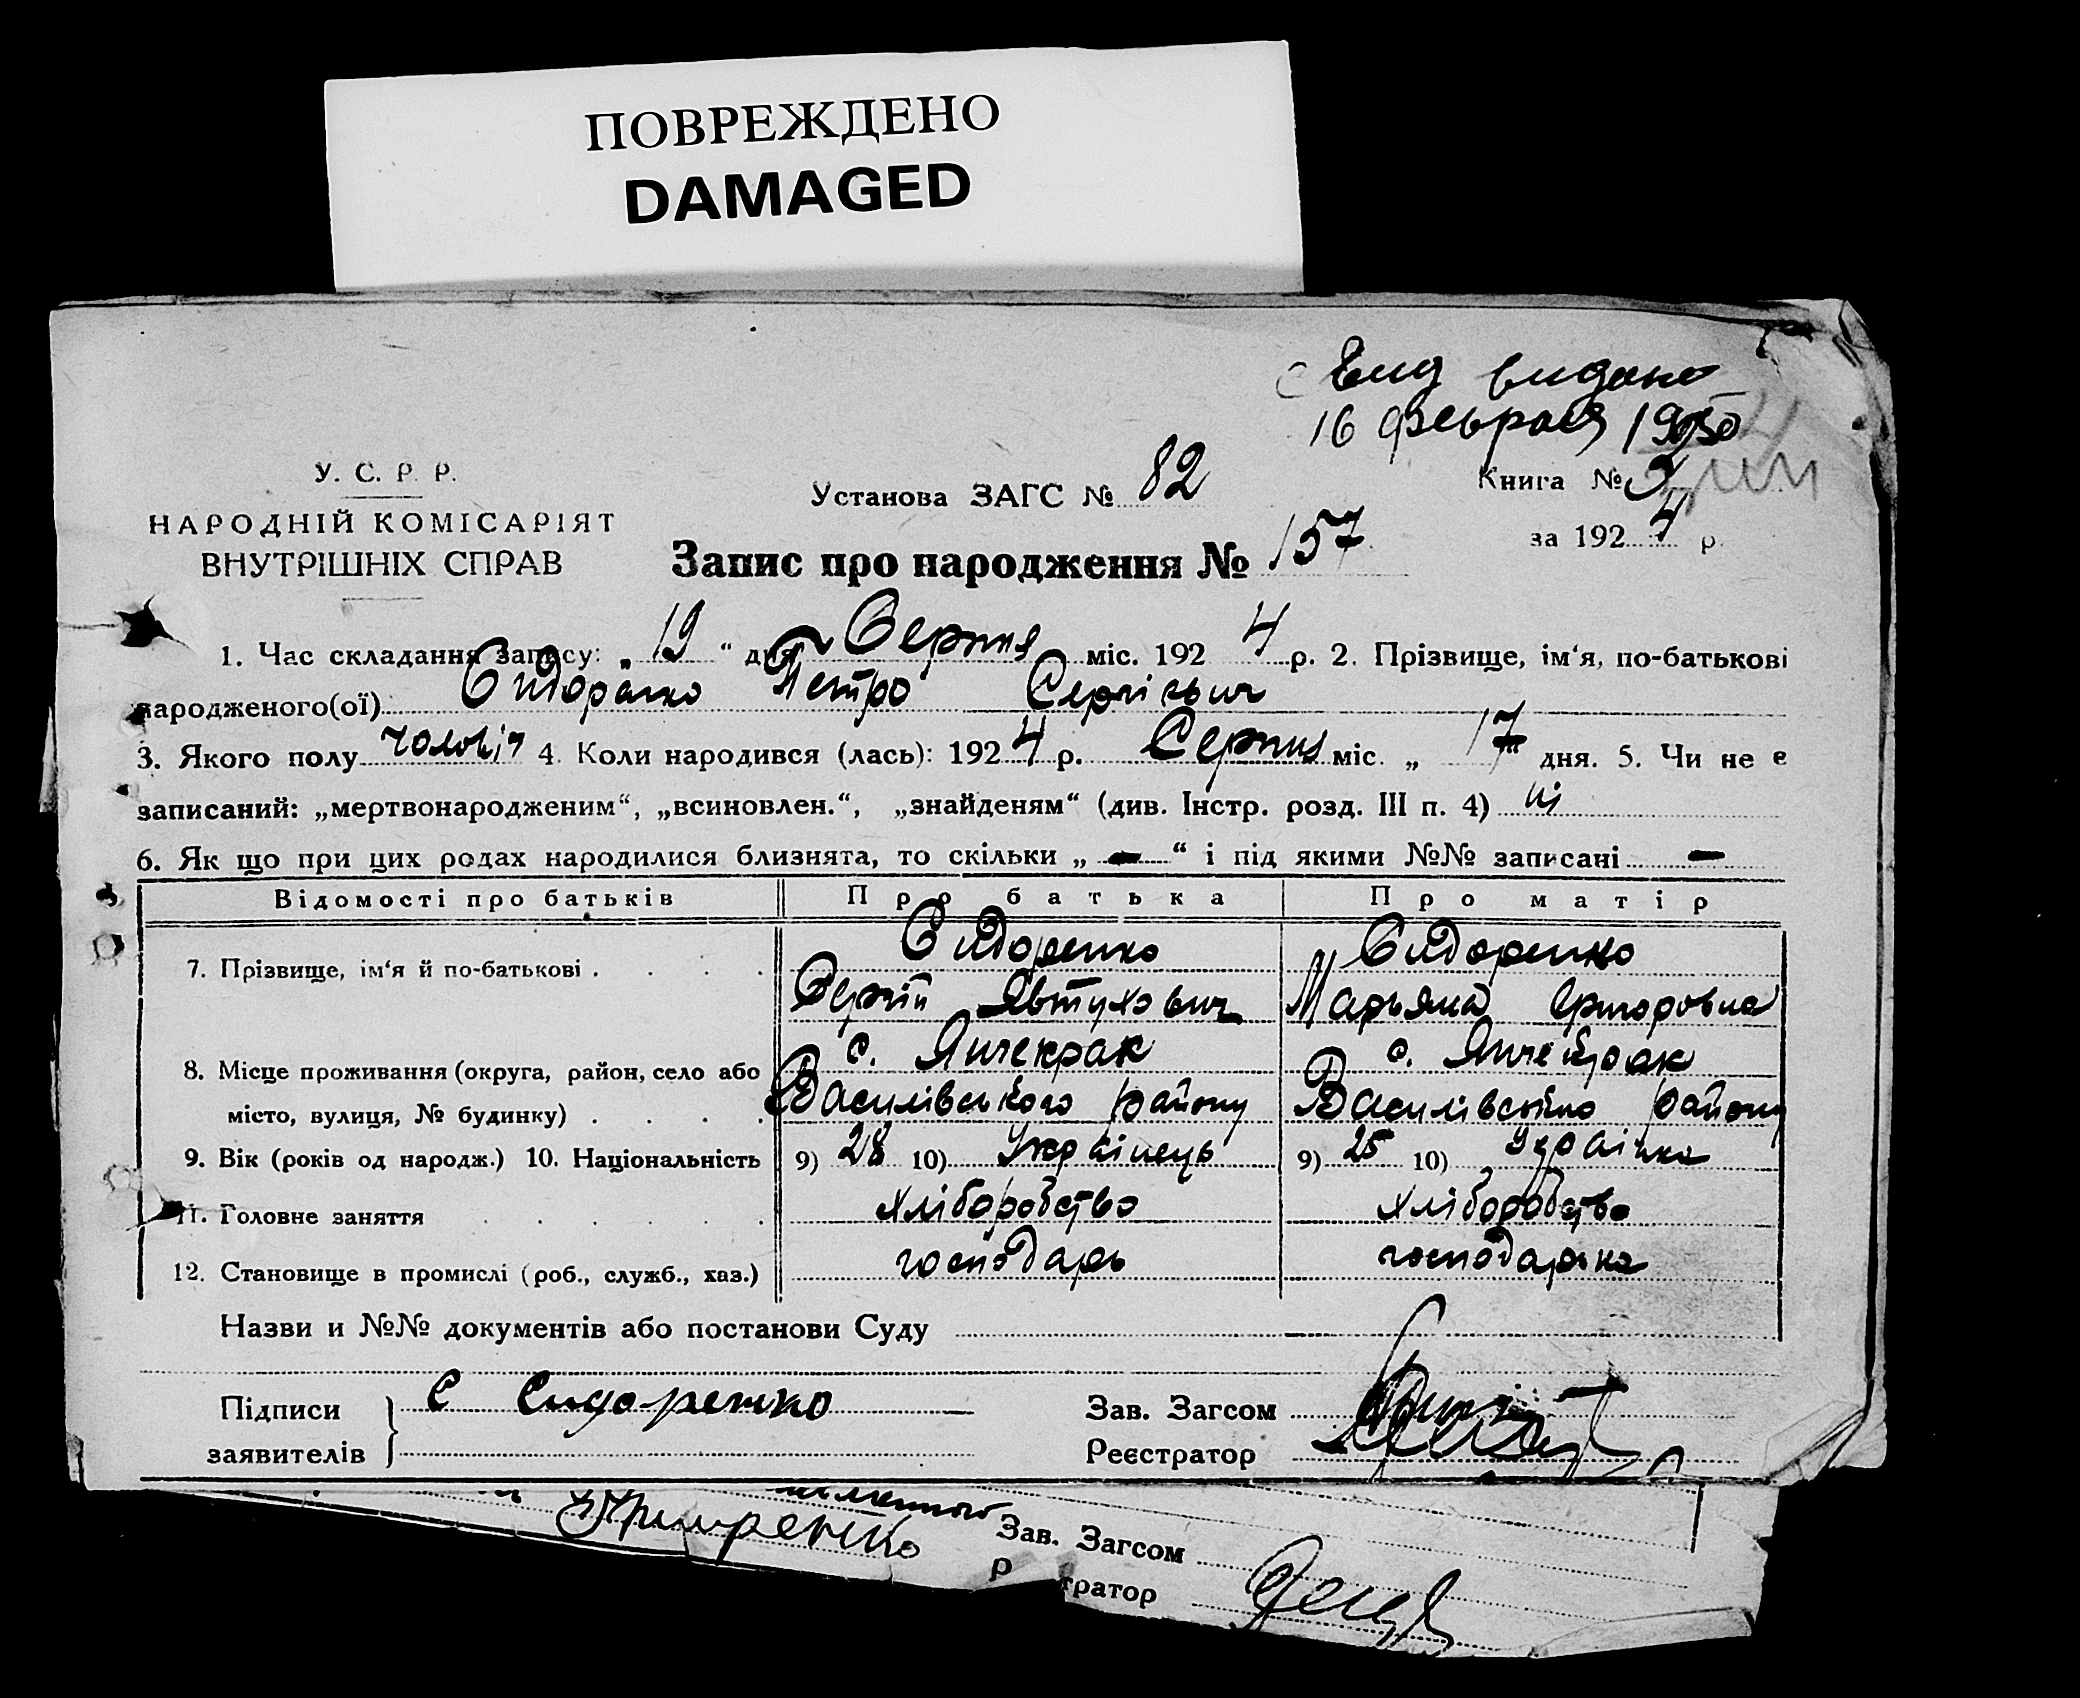 ПОВРЕЖДЕНО
DAMAGED
видано
16 февраля 1950
У. С. Р. Р.
НАРОДНІЙ КОМІСАРІЯТ
ВНУТРІШНІХ СПРАВ
Установа ЗАГС № 82
Книга №
за 1924 р.
Запис про народження № 157
1. Час складання запису: „ 19 “ дня Серпня міс. 1924 р. 2. Прізвище, ім‘я, по-батькові
народженого(ої) Сидоренко Петро Сергієвич
3. Якого полу чоловіч 4. Коли народився (лась): 1924 р. Серпня міс. „ 17 “ дня. 5. Чи не є
записаний: „мертвонародженим“, „всиновлен.“, „знайденям“ (див. Інстр. розд. III п. 4) ні
6. Як що при цих родах народилися близнята, то скільки „ — “ і під якими №№ записані —
Відомості про батьків Про батька Про матір
7. Прізвище, ім‘я й по-батькові . . . . Сидоренко Сидоренко
Сергій Явтухович Марьяна Григоровна
с. Янчекрак с. Янчекрак
8. Місце проживання (округа, район, село або
місто, вулиця, № будинку) . . . . Василівського району Василівського району
9. Вік (років од народж.) 10. Національність 9) 28 10) Українець 9) 25 10) Українка
11. Головне заняття . . . . . . хліборобство хліборобство
12. Становище в промислі (роб., служб., хаз.) господарь господарька
Назви и №№ документів або постанови Суду
Підписи заявителів С Сидоренко
Зав. Загсом
Реєстратор
Зав. Загсом
Р тратор